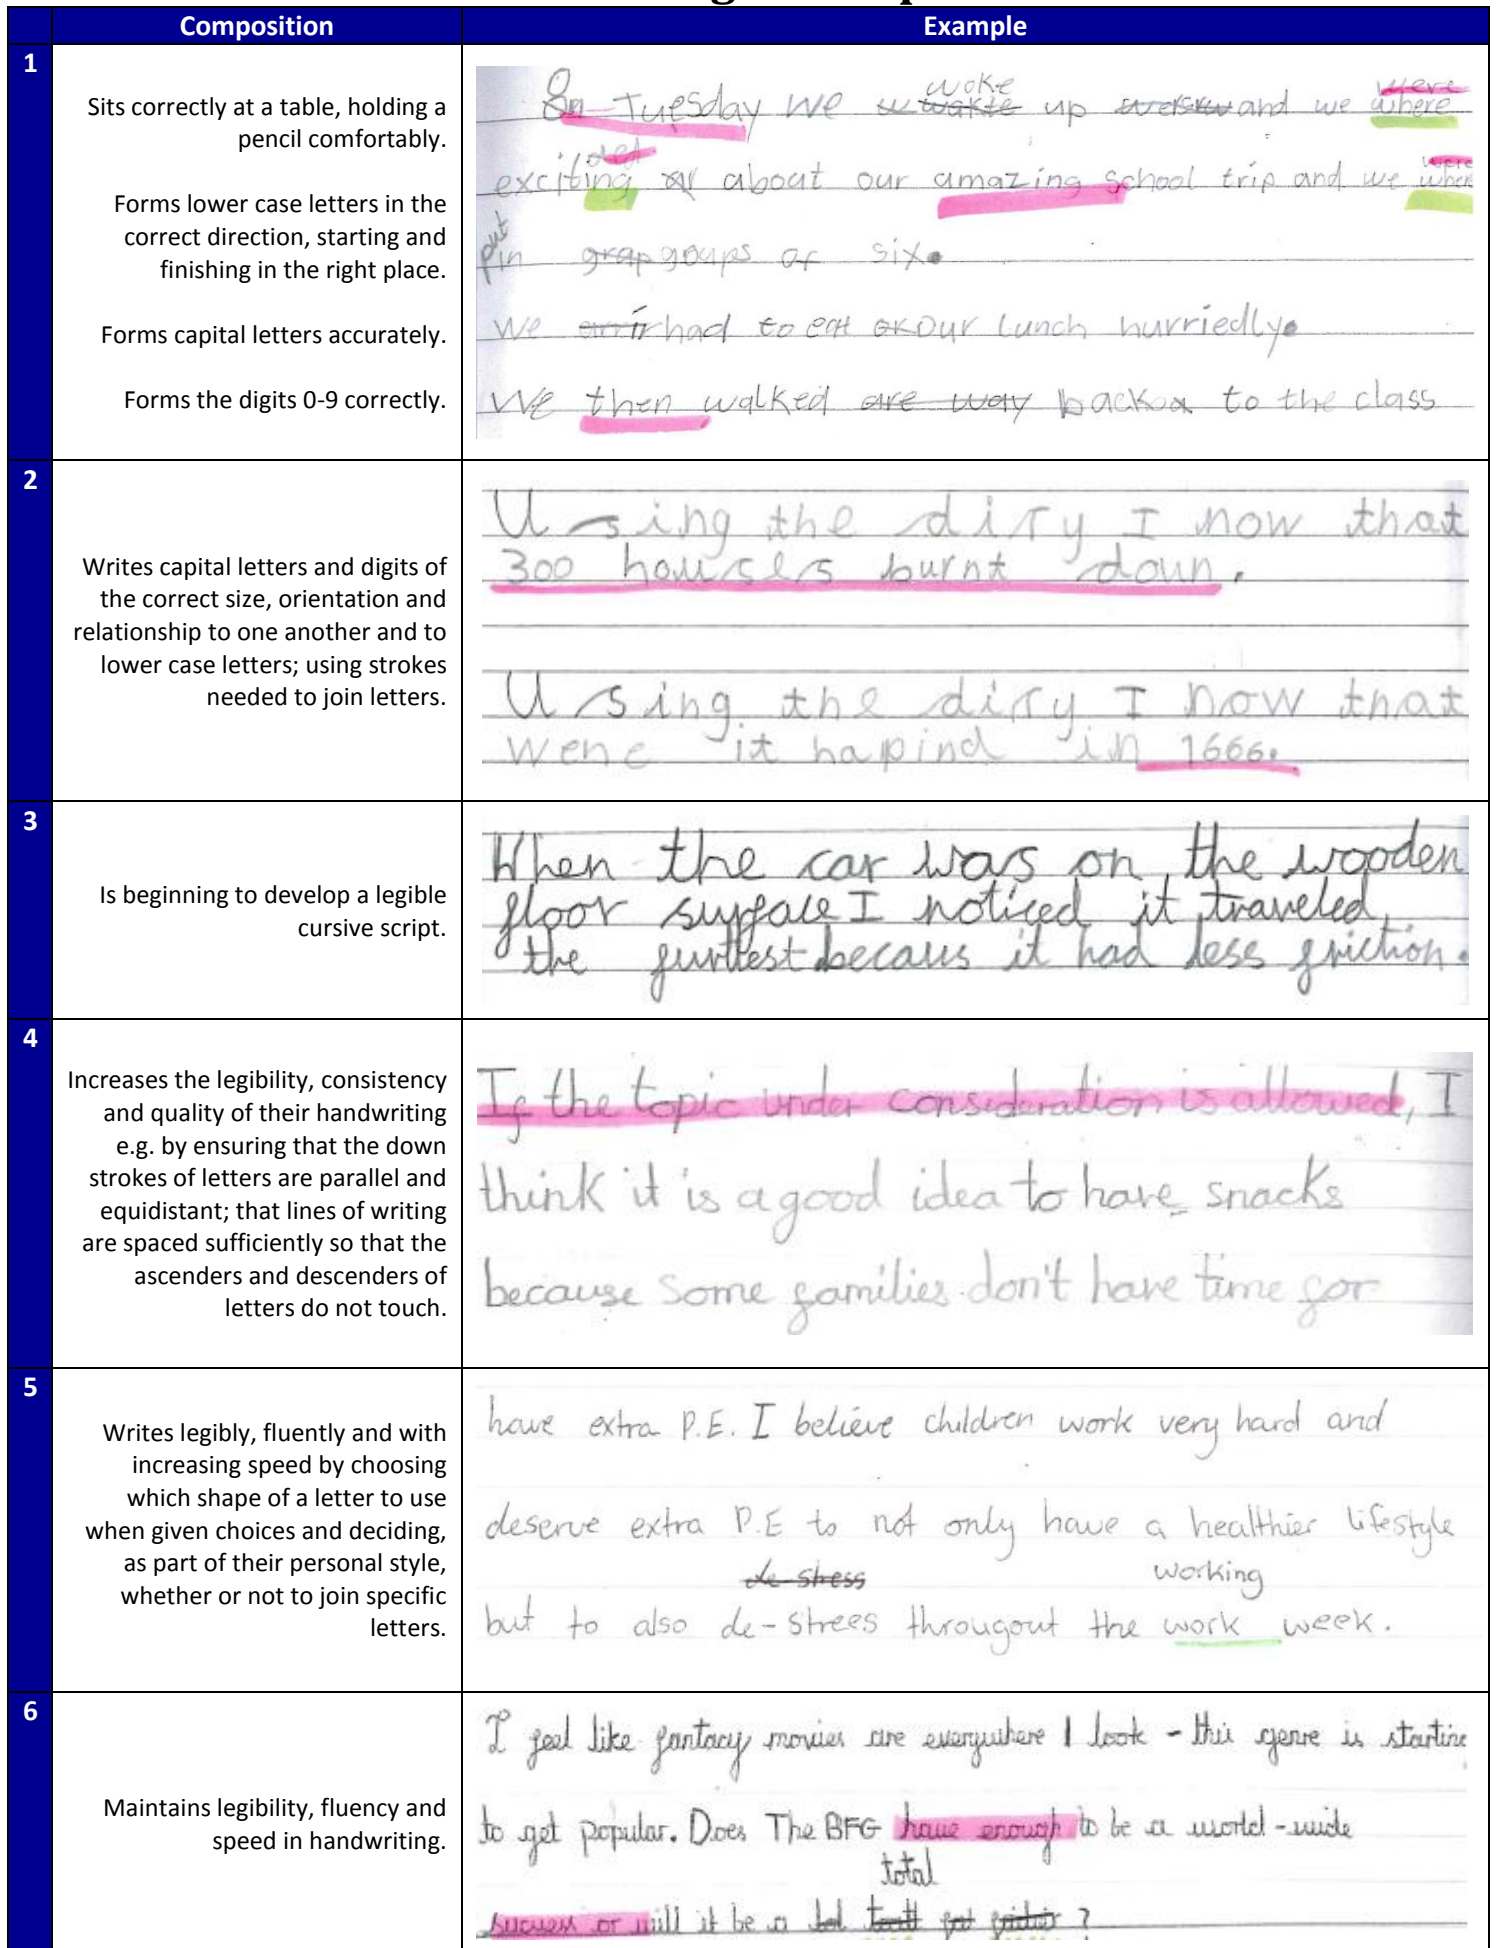 Composition Example
1
Sits correctly at a table, holding a
pencil comfortably.
Forms lower case letters in the
correct direction, starting and
finishing in the right place.
Forms capital letters accurately.
Forms the digits 0-9 correctly.
woke were
On Tuesday we up and we where
ed were
exciting about our amazing school trip and we when
put
in grap goups of six.
We had to eat our lunch hurriedly.
We then walked are way back to the class
2
Writes capital letters and digits of
the correct size, orientation and
relationship to one another and to
lower case letters; using strokes
needed to join letters.
Using the diry I now that
300 houses burnt doun.
Using the diry I now that
wene it hapind in 1666.
3
Is beginning to develop a legible
cursive script.
When the car was on the wooden
floor surface I noticed it traveled
the furttest becaus it had less friction.
4
Increases the legibility, consistency
and quality of their handwriting
e.g. by ensuring that the down
strokes of letters are parallel and
equidistant; that lines of writing
are spaced sufficiently so that the
ascenders and descenders of
letters do not touch.
If the topic under consideration is allowed, I
think it is a good idea to have snacks
because some families don't have time for
5
Writes legibly, fluently and with
increasing speed by choosing
which shape of a letter to use
when given choices and deciding,
as part of their personal style,
whether or not to join specific
letters.
have extra P.E. I believe children work very hard and
deserve extra P.E to not only have a healthier lifestyle
de-stress working
but to also de-strees througout the work week.
6
Maintains legibility, fluency and
speed in handwriting.
I feel like fantacy movies are everywhere I look - this genre is starting
to get popular. Does The BFG have enough to be a world-wide
total
success or will it be a ?